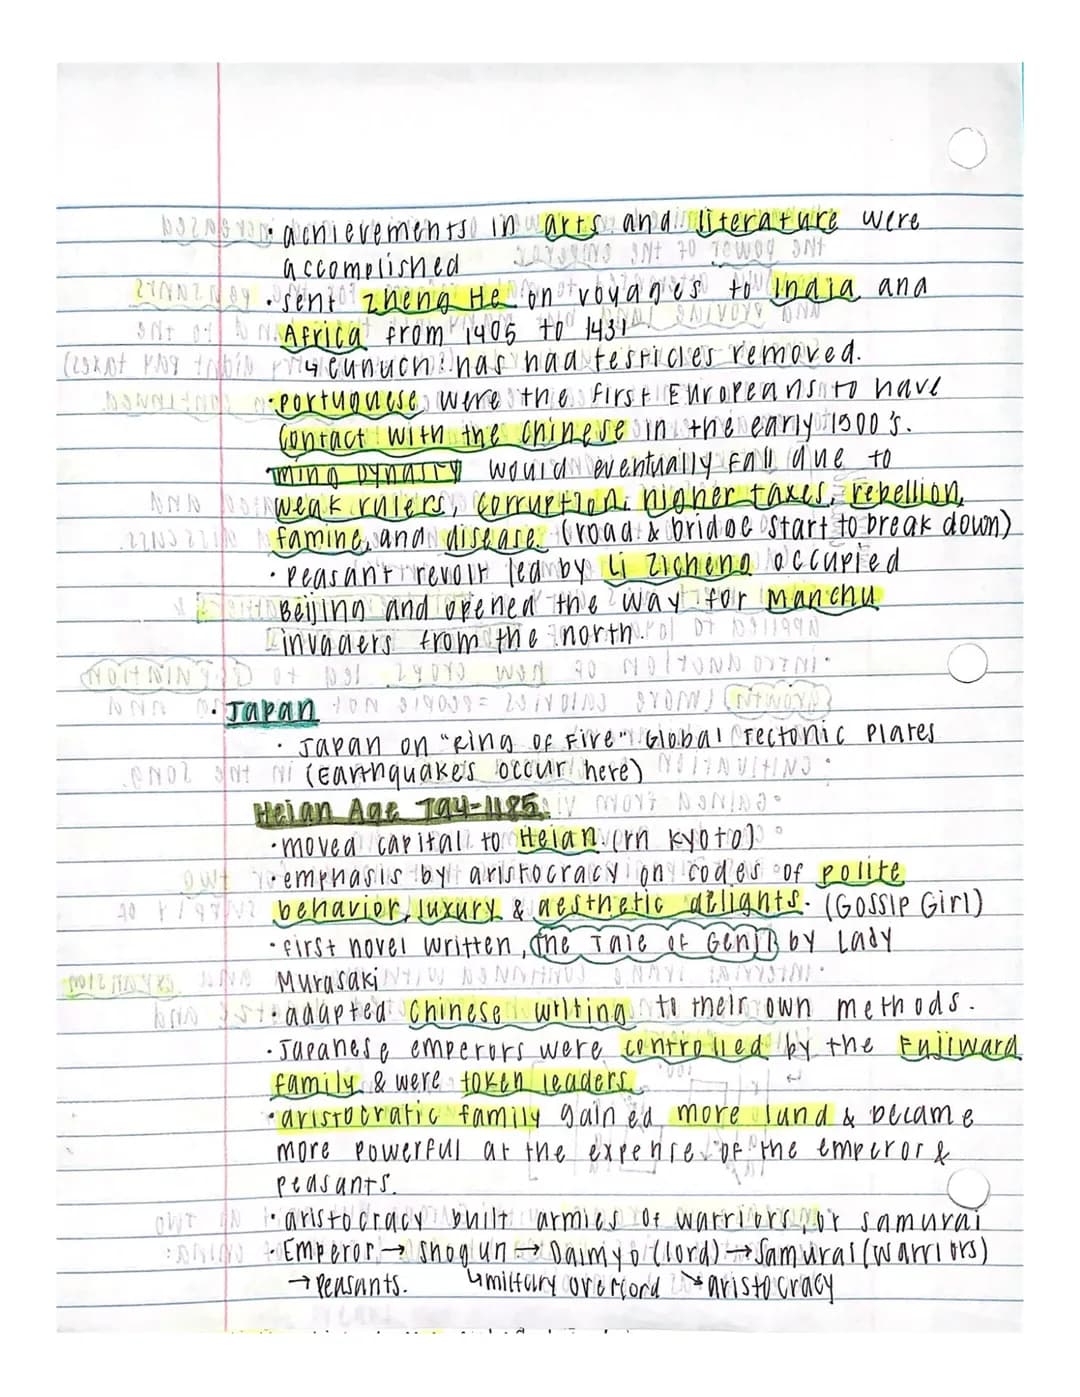 • achievements in arts and literature were
accomplished
• sent Zheng He on voyages to India and
Africa from 1405 to 1431
↳ eunuch: has had testicles removed.
• Portuguese were the first Europeans to have
contact with the Chinese in the early 1500's.
• Ming Dynasty would eventually fall due to
weak rulers, corruption, higher taxes, rebellion,
famine, and disease. (road & bridge start to break down)
• Peasant revolt led by Li Zicheng occupied
Beijing and opened the way for Manchu
invaders from the north.
• Japan
• Japan on "Ring of Fire" Global Tectonic Plates
(Earthquakes occur here)
Heian Age 794-1185
• moved capital to Heian (rn Kyoto)
• emphasis by aristocracy on codes of polite
behavior, luxury & aesthetic delights. (Gossip Girl)
• first novel written, The Tale of Genji by Lady
Murasaki
• adapted Chinese writing to their own methods.
• Japanese emperors were controlled by the Fujiwara
family & were token leaders.
• aristocratic family gained more land & became
more powerful at the expense of the emperor &
peasants.
• aristocracy built armies of warriors, or samurai
• Emperor → Shogun → Daimyo (lord) → Samurai (warriors)
→ Peasants. ↳ military overlord → aristocracy